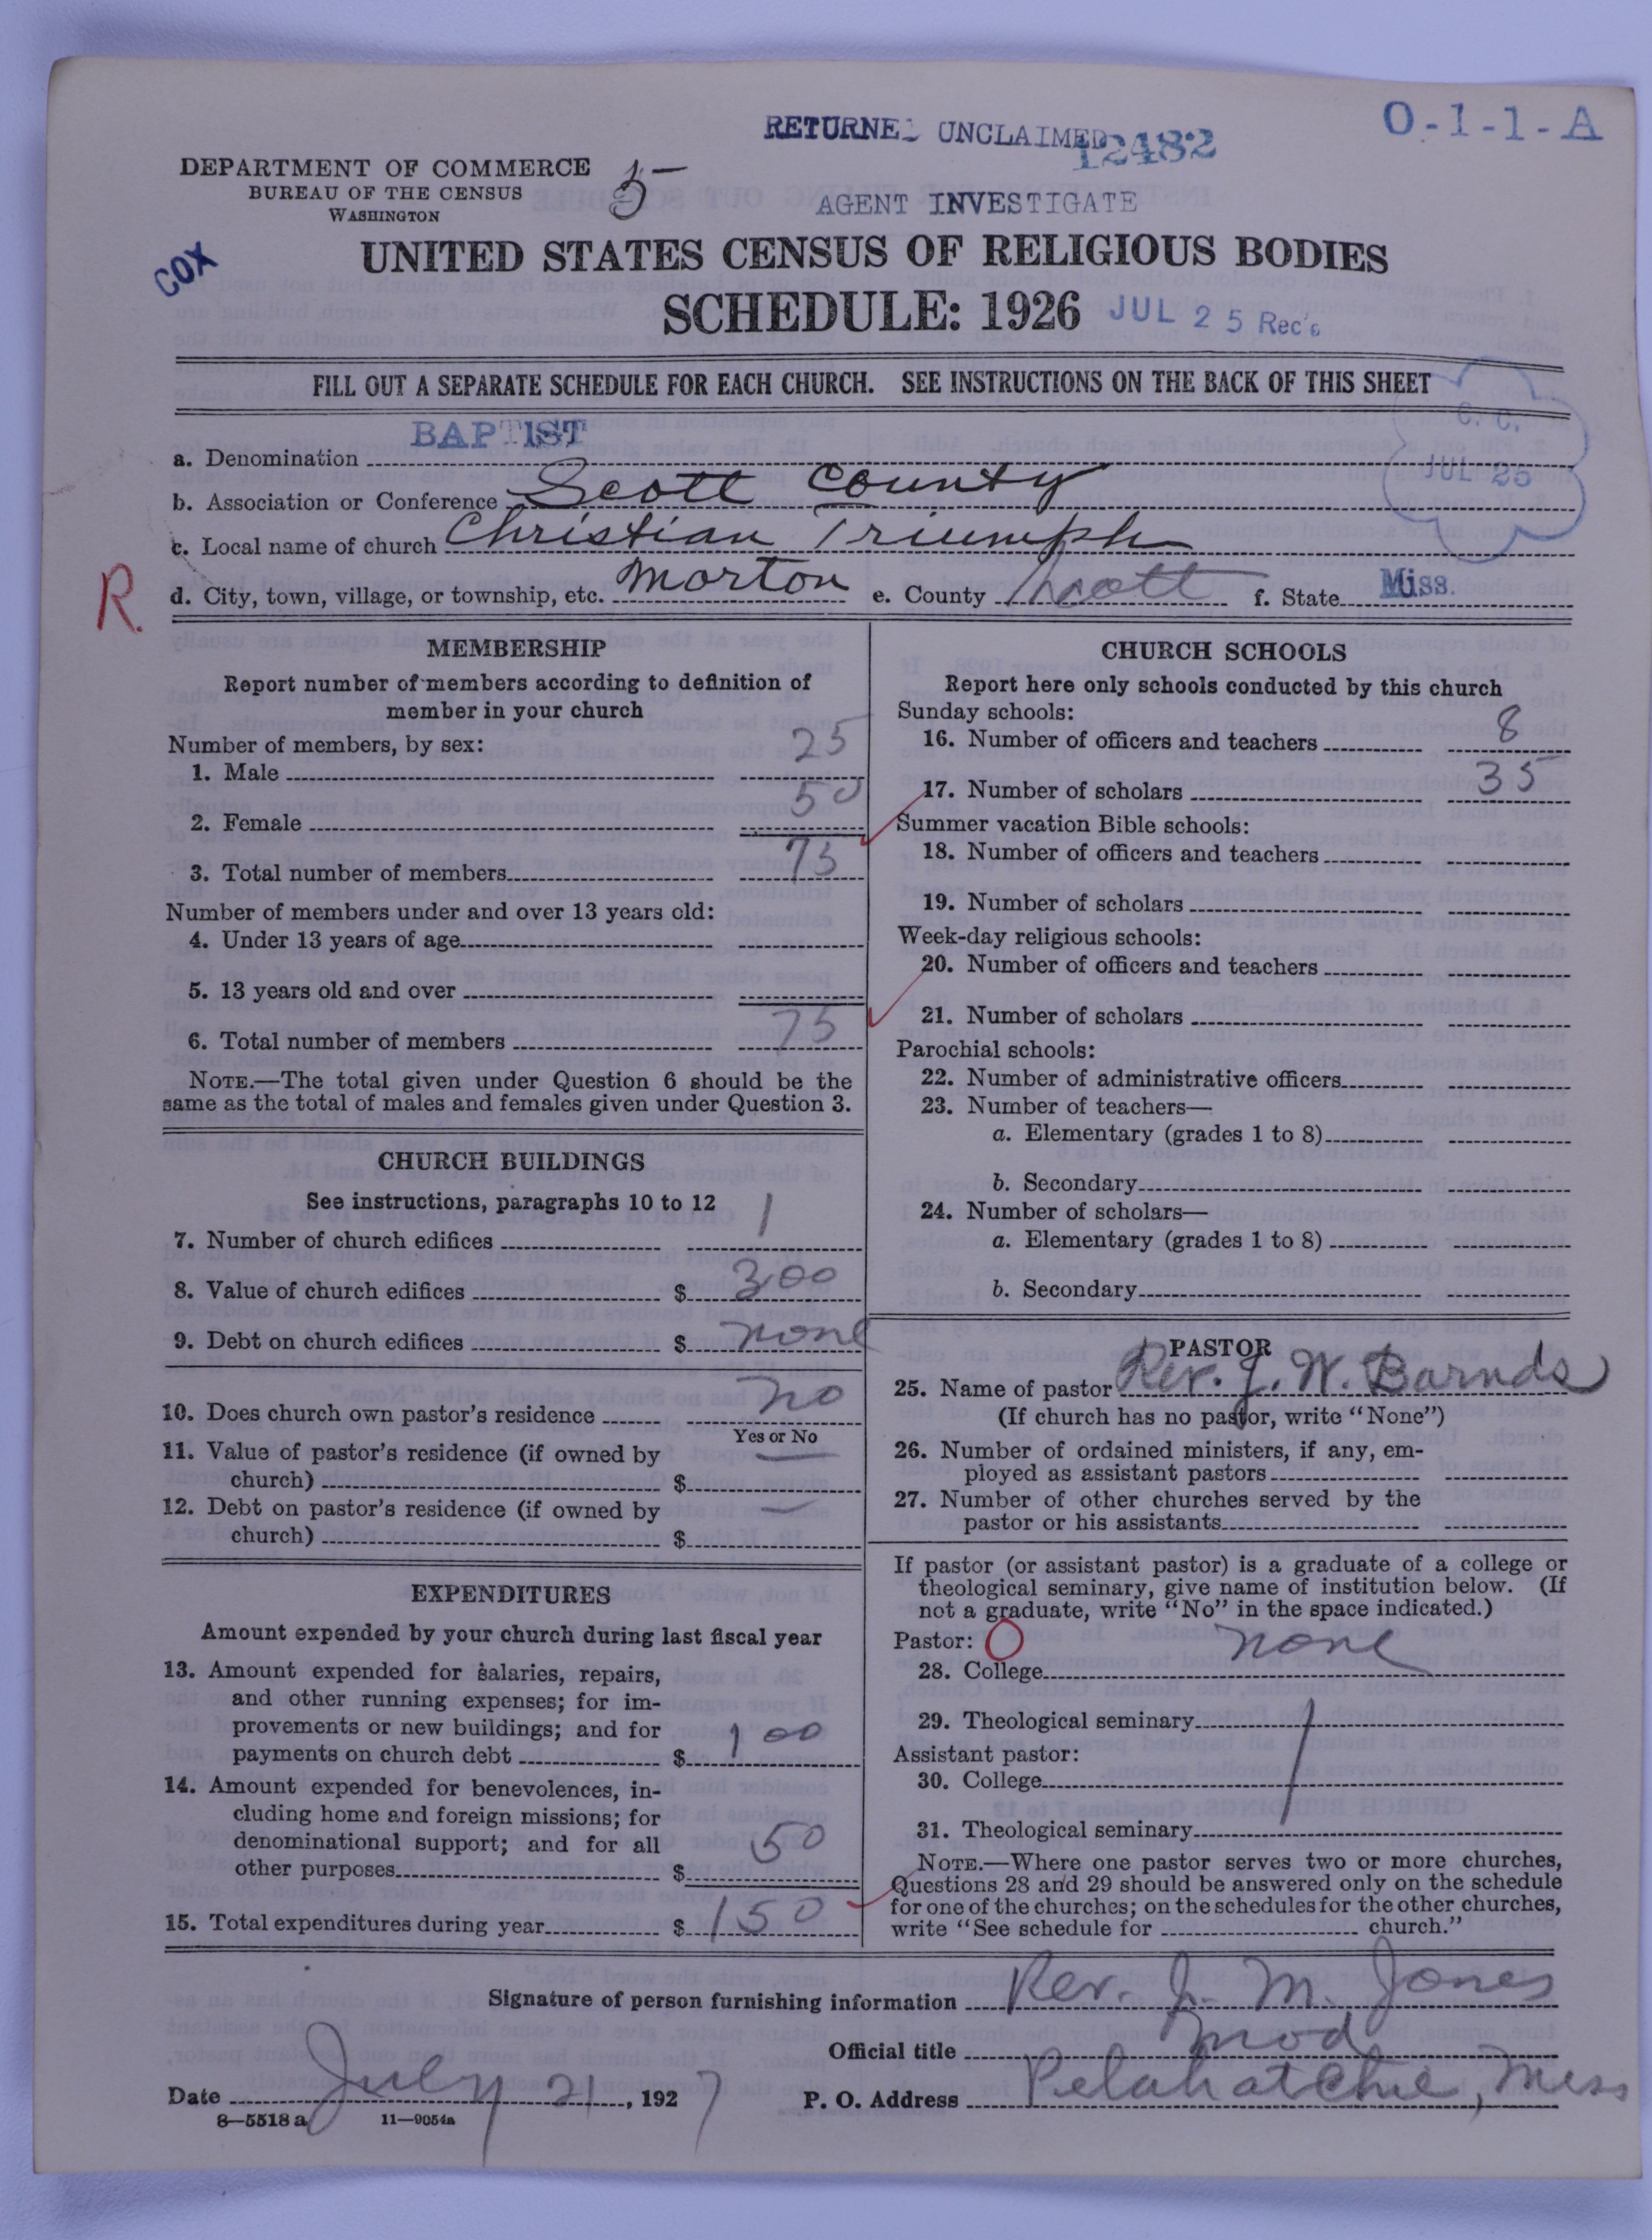 RETURNED UNCLAIMED
12482
O-1-1-A
DEPARTMENT OF COMMERCE
BUREAU OF THE CENSUS
WASHINGTON
5
AGENT INVESTIGATE
COX
UNITED STATES CENSUS OF RELIGIOUS BODIES
SCHEDULE: 1926
JUL 25 Rec'd
FILL OUT A SEPARATE SCHEDULE FOR EACH CHURCH. SEE INSTRUCTIONS ON THE BACK OF THIS SHEET
C. C.
JUL 25
a. Denomination BAPTIST
b. Association or Conference Scott County
c. Local name of church Christian Triumph
R.
d. City, town, village, or township, etc. Morton e. County Scott f. State Miss.
MEMBERSHIP
Report number of members according to definition of
member in your church
Number of members, by sex:
1. Male 25
2. Female 50
3. Total number of members 75
Number of members under and over 13 years old:
4. Under 13 years of age
5. 13 years old and over
6. Total number of members 75
NOTE.—The total given under Question 6 should be the
same as the total of males and females given under Question 3.
CHURCH BUILDINGS
See instructions, paragraphs 10 to 12
7. Number of church edifices 1
8. Value of church edifices $ 300
9. Debt on church edifices $ none
10. Does church own pastor's residence no
Yes or No
11. Value of pastor's residence (if owned by
church) $ —
12. Debt on pastor's residence (if owned by
church) $ —
EXPENDITURES
Amount expended by your church during last fiscal year
13. Amount expended for salaries, repairs,
and other running expenses; for im-
provements or new buildings; and for
payments on church debt $ 100
14. Amount expended for benevolences, in-
cluding home and foreign missions; for
denominational support; and for all
other purposes $ 50
15. Total expenditures during year $ 150
CHURCH SCHOOLS
Report here only schools conducted by this church
Sunday schools:
16. Number of officers and teachers 8
17. Number of scholars 35
Summer vacation Bible schools:
18. Number of officers and teachers
19. Number of scholars
Week-day religious schools:
20. Number of officers and teachers
21. Number of scholars
Parochial schools:
22. Number of administrative officers
23. Number of teachers—
a. Elementary (grades 1 to 8)
b. Secondary
24. Number of scholars—
a. Elementary (grades 1 to 8)
b. Secondary
PASTOR
25. Name of pastor Rev. J. W. Barnds
(If church has no pastor, write "None")
26. Number of ordained ministers, if any, em-
ployed as assistant pastors
27. Number of other churches served by the
pastor or his assistants
If pastor (or assistant pastor) is a graduate of a college or
theological seminary, give name of institution below. (If
not a graduate, write "No" in the space indicated.)
Pastor: O
28. College none
29. Theological seminary
Assistant pastor:
30. College
31. Theological seminary
NOTE.—Where one pastor serves two or more churches,
Questions 28 and 29 should be answered only on the schedule
for one of the churches; on the schedules for the other churches,
write "See schedule for church."
Signature of person furnishing information Rev. J. M. Jones
Official title mod
Date July 21, 1927 P. O. Address Pelahatchie, Miss
8—5518 a 11—9054a